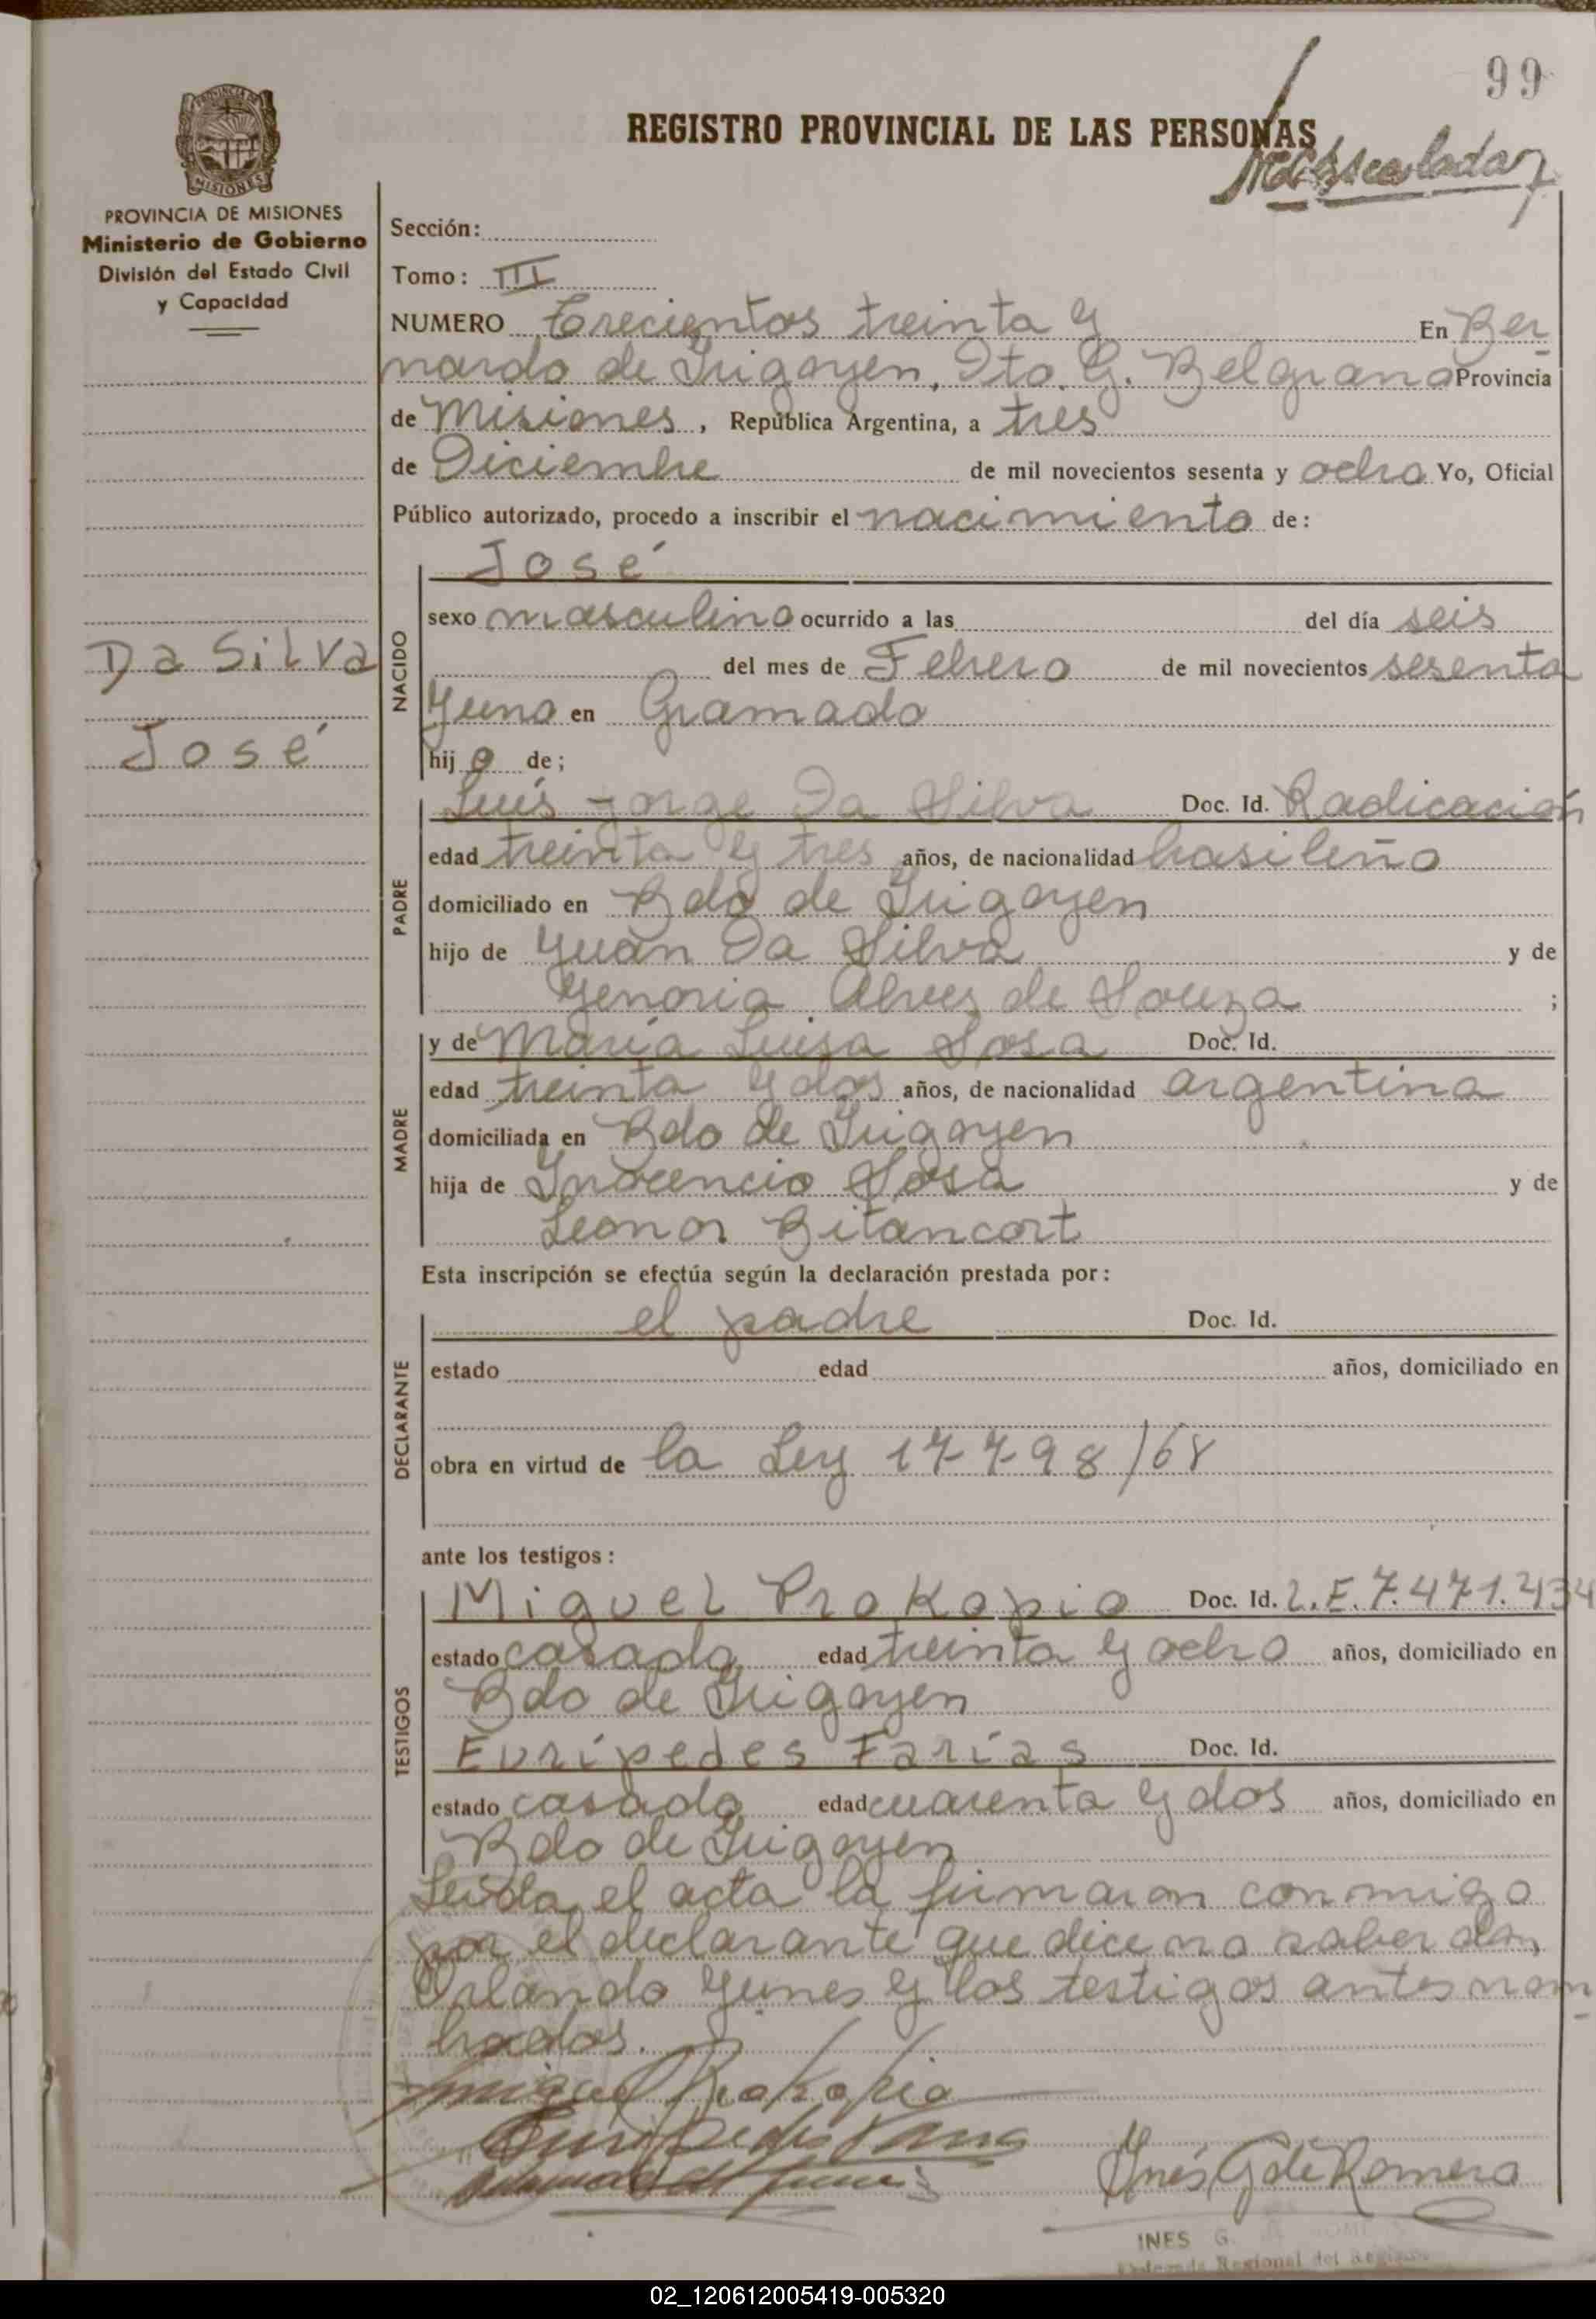 99
REGISTRO PROVINCIAL DE LAS PERSONAS
PROVINCIA DE MISIONES
Ministerio de Gobierno
División del Estado Civil
y Capacidad
Sección:
Tomo: III
NUMERO Trecientos treinta y En Ber
nardo de Irigoyen, Dto. G. Belgrano Provincia
de Misiones, República Argentina, a tres
de Diciembre de mil novecientos sesenta y ocho Yo, Oficial
Público autorizado, procedo a inscribir el nacimiento de:
José
sexo masculino ocurrido a las del día seis
del mes de Febrero de mil novecientos sesenta
y uno en Gramado
hijo de;
Da Silva
José
NACIDO
Luís Jorge Da Silva Doc. Id. Radicación
edad treinta y tres años, de nacionalidad brasileño
domiciliado en Bdo de Irigoyen
hijo de Juan Da Silva y de
Genoria Alves de Souza ;
PADRE
y de María Luisa Sosa Doc. Id.
edad treinta y dos años, de nacionalidad argentina
domiciliada en Bdo de Irigoyen
hija de Inocencio Sosa y de
Leonor Bitancort
MADRE
Esta inscripción se efectúa según la declaración prestada por:
el padre Doc. Id.
estado edad años, domiciliado en
obra en virtud de la Ley 17798/68
DECLARANTE
ante los testigos:
Miguel Prokopio Doc. Id. L.E. 7.471.434
estado casado edad treinta y ocho años, domiciliado en
Bdo de Irigoyen
Eurípedes Farías Doc. Id.
estado casado edad cuarenta y dos años, domiciliado en
Bdo de Irigoyen
TESTIGOS
Leída el acta la firmaron conmigo
por el declarante que dice no saber don
Orlando Yunes y los testigos antes nom
brados.
Miguel Prokopio
Inés G de Romero
INES G.
Regional del
02_120612005419-005320